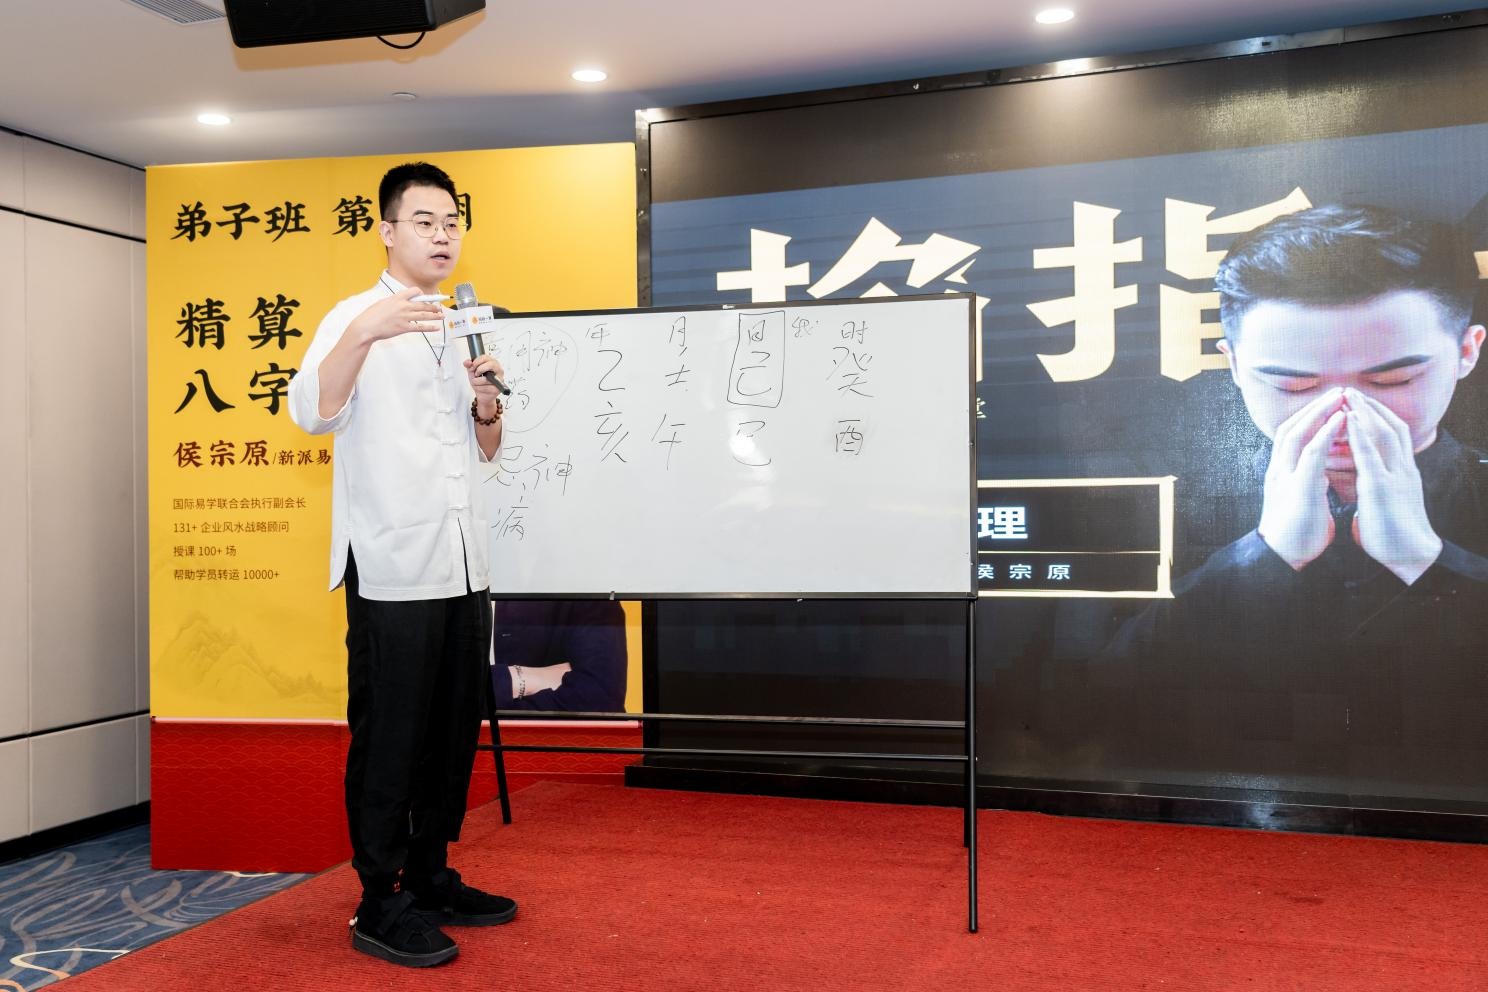 弟子班 第
精算
八字
侯宗原/新派易
国际易学联合会执行副会长
131+ 企业风水战略顾问
授课 100+ 场
帮助学员转运 10000+
用神
药
忌神
病
年 月 日 我 时
乙 壬 己 癸
亥 午 巳 酉
指
理
侯宗原